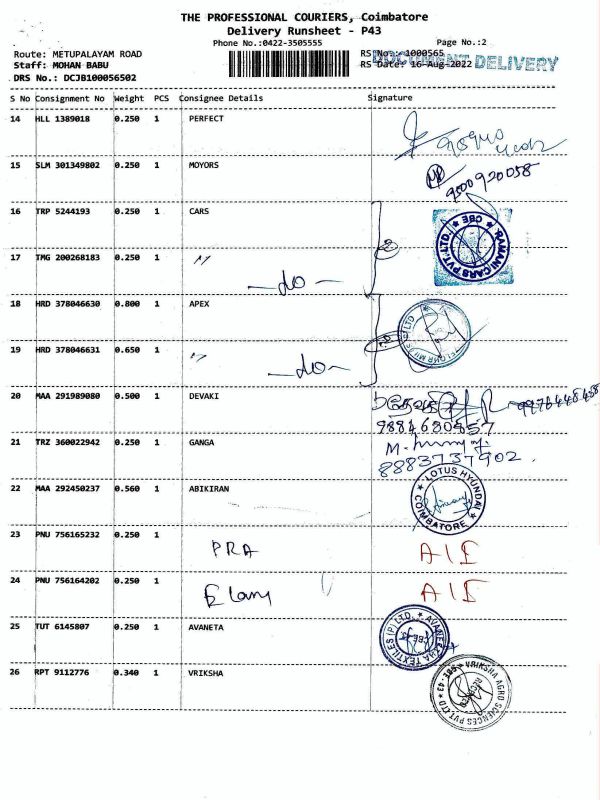 THE PROFESSIONAL COURIERS, Coimbatore
Delivery Runsheet - P43
Phone No.:0422-3505555 Page No.:2
Route: METUPALAYAM ROAD RS No.: 1000565
Staff: MOHAN BABU RS Date: 16-Aug-2022 DOCUMENT DELIVERY
DRS No.: DCJB100056502
S No Consignment No Weight PCS Consignee Details Signature
14 HLL 1389018 0.250 1 PERFECT
15 SLM 301349802 0.250 1 MOYORS
9500920058
16 TRP 5244193 0.250 1 CARS
RAMANI CARS PVT. LTD. ★ CBE ★
17 TMG 200268183 0.250 1 〃
—do—
18 HRD 378046630 0.800 1 APEX
19 HRD 378046631 0.650 1 〃
—do—
20 MAA 291989080 0.500 1 DEVAKI
21 TRZ 360022942 0.250 1 GANGA
8883737902.
22 MAA 292450237 0.560 1 ABIKIRAN
★ LOTUS HYUNDAI ★ COIMBATORE
23 PNU 756165232 0.250 1
PRA
24 PNU 756164202 0.250 1
25 TUT 6145807 0.250 1 AVANETA
TEXTILES (P) LTD.
26 RPT 9112776 0.340 1 VRIKSHA
VRIKSHA AGRO SCIENCES PVT LTD ★ CBE-43 ★